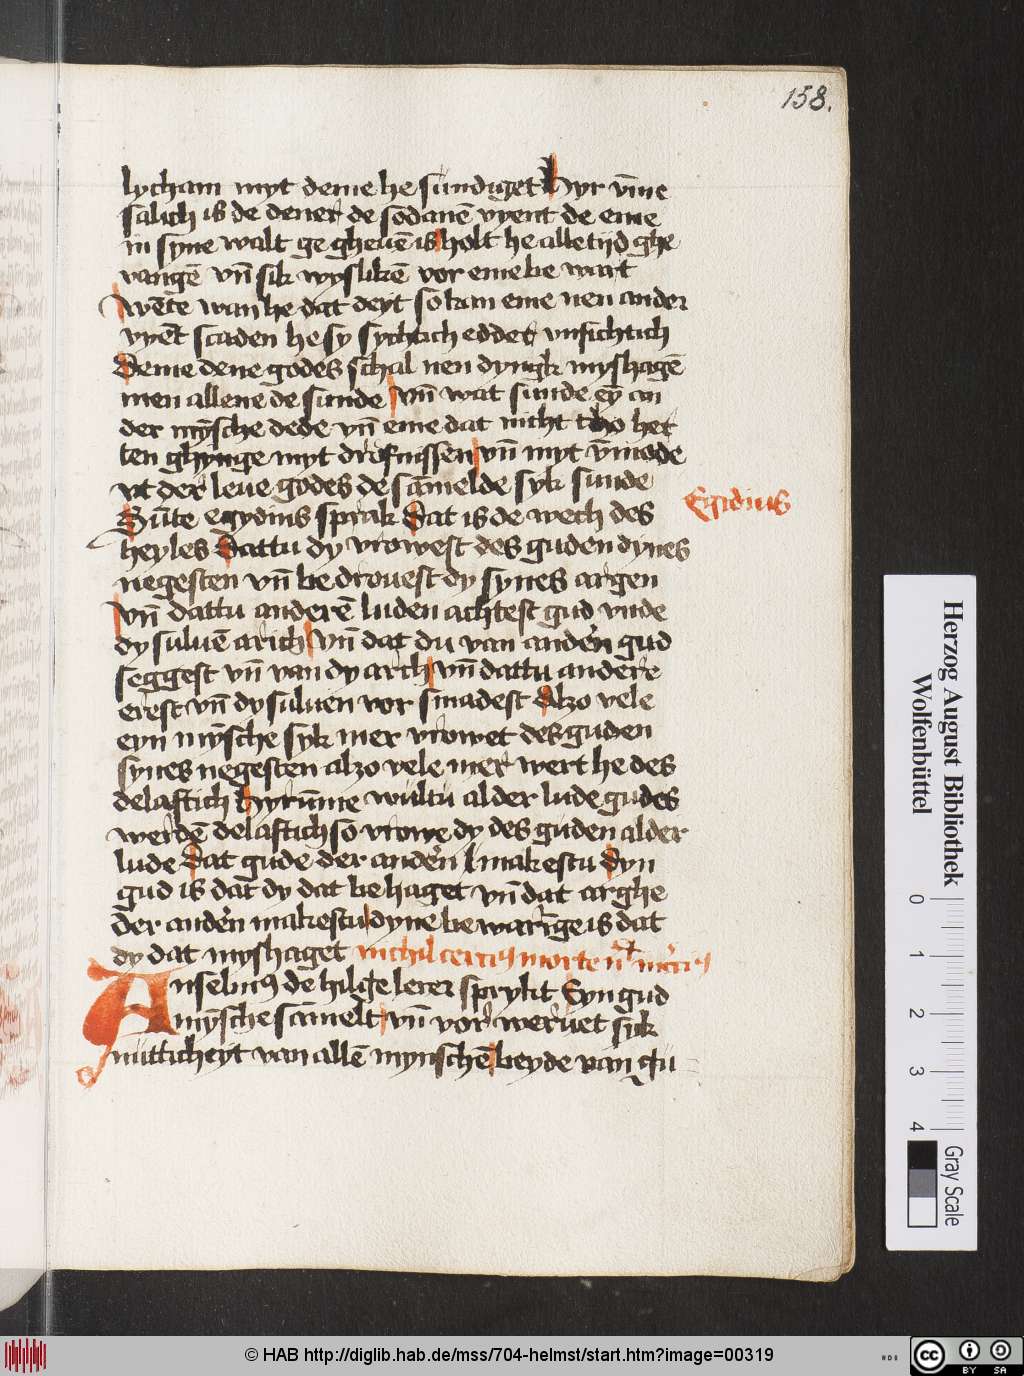 158.
lycham myt deme he sundiget Hyr v̄me
salich is de dener̛ de sodanē vyent de eme
in syne walt ge gheuē is holt he alle tijd ghe
vangē vn̄ sik wyslikē vor eme be wart
wēte wan he dat deyt so kan eme nen ander
vyēt scaden he sy sychtich edder̛ vnsichtich
Deme dene godes schal nen dyngk myshagē
men allene de sunde vn̄ wat sunde ey̅ an
der mȳsche dede vn̄ eme dat nicht tho het
ten ghynge myt drofnissen vn̄ myt v̄mode
vt der̛ leue godes de sāmelde syk sunde
Sūte egydius sprak dat is de wech des
Egidius
heyles dattu dy vrowest des guden dynes
negesten vn̄ be drouest dy synes argen
vn̄ dattu anderē luden achtest gud vnde
dy suluē arich vn̄ dat du van ander̛n gud
seggest vn̄ van dy arch vn̄ dattu andere
erest vn̄ dy suluen vor smadest Alzo vele
eyn mȳsche syk mer vrowet des guden
synes negesten alzo vele mer̛ wert he des
delaftich hyrūme wultu al der lude gudes
werdē delaftich so vrowe dy des guden al der
lude dat gude der ander̛n makestu dyn
gud is dat dy dat be haget vn̄ dat arghe
der ander̛n makestu dyne be warīge is dat
dy dat myshaget nichil cercius morte
Anselmꝯ de hilge lerer sprykt Eyn gud
mȳsche sāmelt vn̄ vor̛ wer̛uet syk
nutticheyt van allē mynschē beyde van gu
Herzog August Bibliothek
Wolfenbüttel
0 1 2 3 4
Gray Scale
© HAB http://diglib.hab.de/mss/704-helmst/start.htm?image=00319
cc BY SA